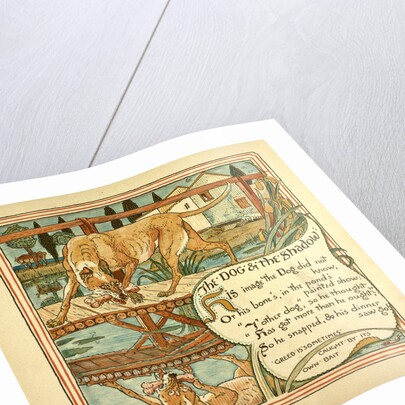 THE · DOG & THE SHADOW
HIS image the Dog did not
know,
Or his bone's, in the pond's
painted show:
"T'other dog," so he thought
"Has got more than he ought,"
So he snapped, & his dinner
saw go!
GREED IS SOMETIMES
CAUGHT · BY · ITS
OWN BAIT